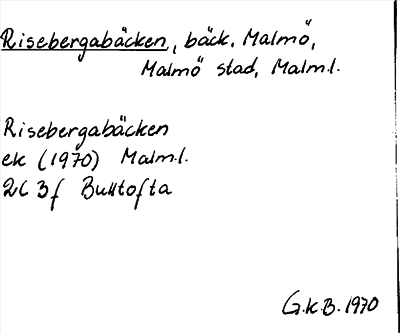 Risebergabäcken, bäck, Malmö,
Malmö stad, Malm.l.
Risebergabäcken
ek (1970) Malm.l.
2C 3f Bulltofta
G.K.B. 1970